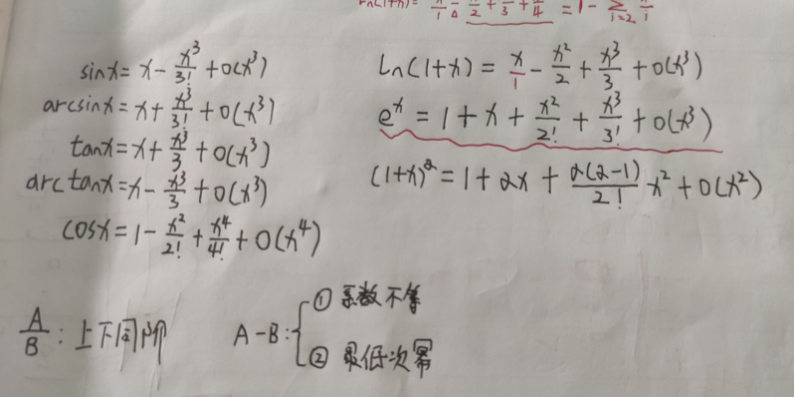 sinx = x - x³/3! + o(x³)
arcsinx = x + x³/3! + o(x³)
tanx = x + x³/3 + o(x³)
arctanx = x - x³/3 + o(x³)
cosx = 1 - x²/2! + x⁴/4! + o(x⁴)
Ln(1+x) = x/1 - x²/2 + x³/3 + o(x³)
eˣ = 1 + x + x²/2! + x³/3! + o(x³)
(1+x)^α = 1 + αx + α(α-1)/2! x² + o(x²)
A/B : 上下同阶
A-B: ① 系数不等
② 最低次幂